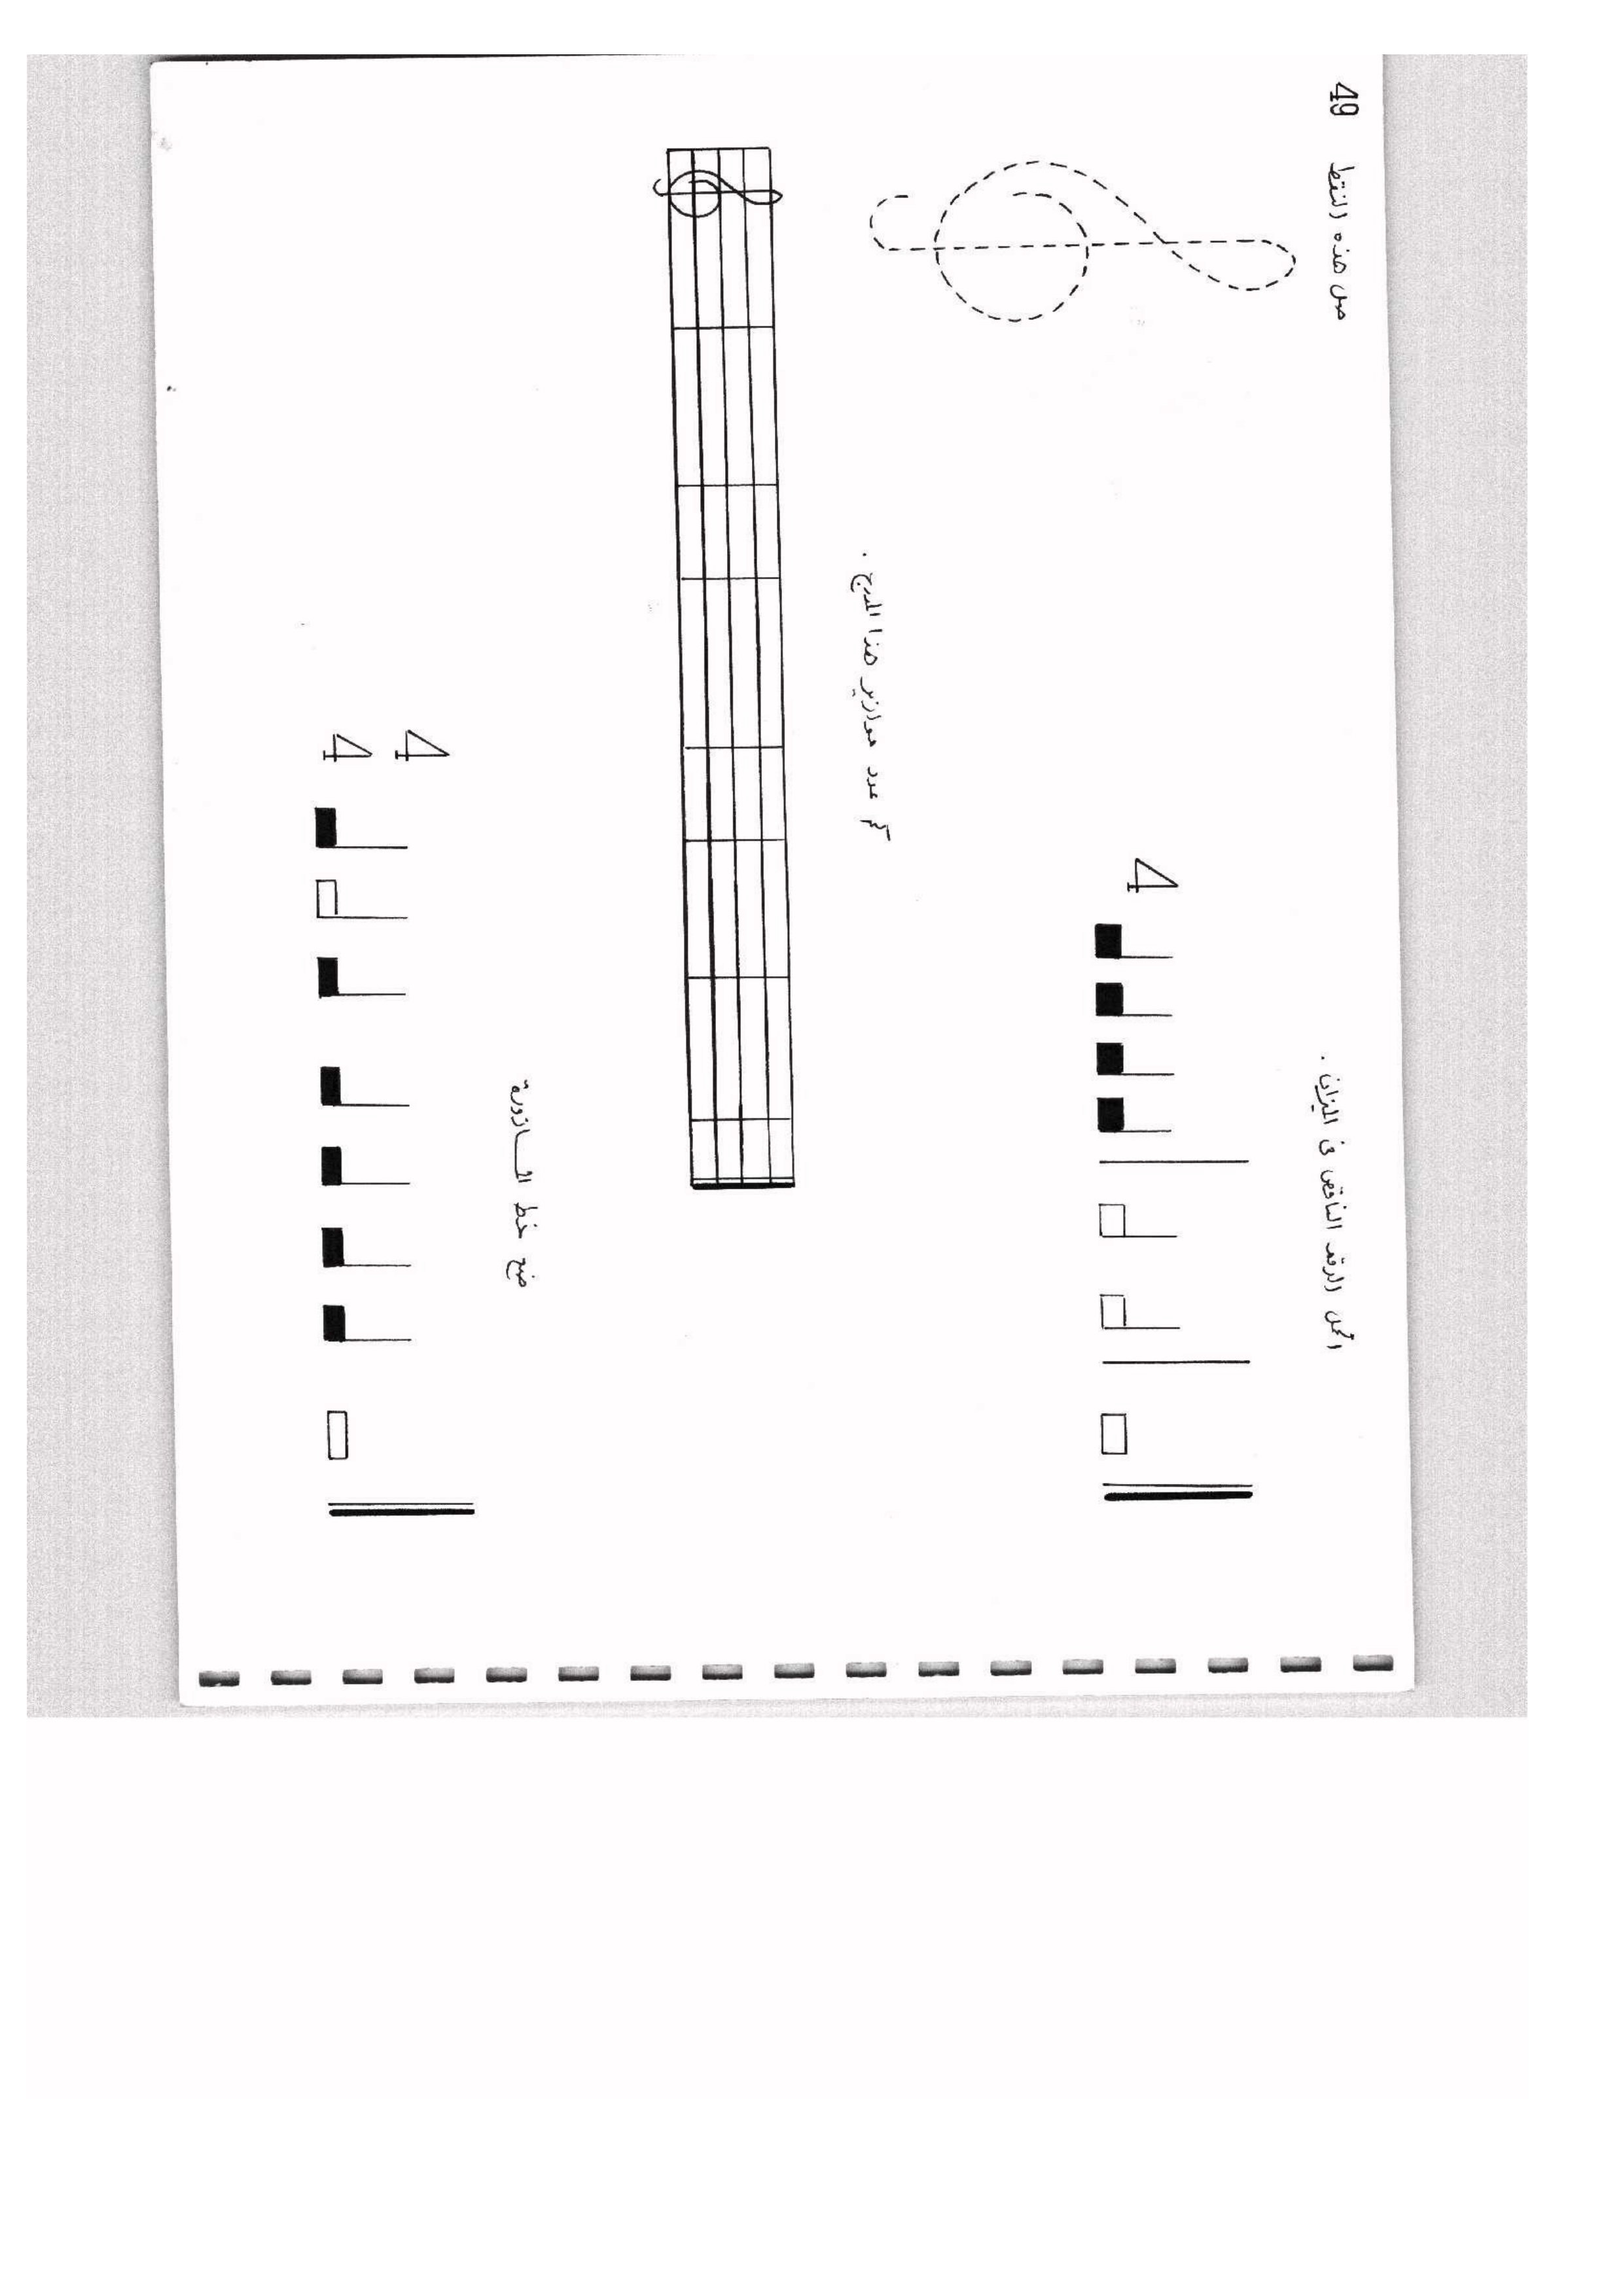 49 صل هذه النقط
اكمل الرقم الناقص فى الميزان .
4
كم عدد موازير هذا المدرج .
ضع خط المازورة
4
4